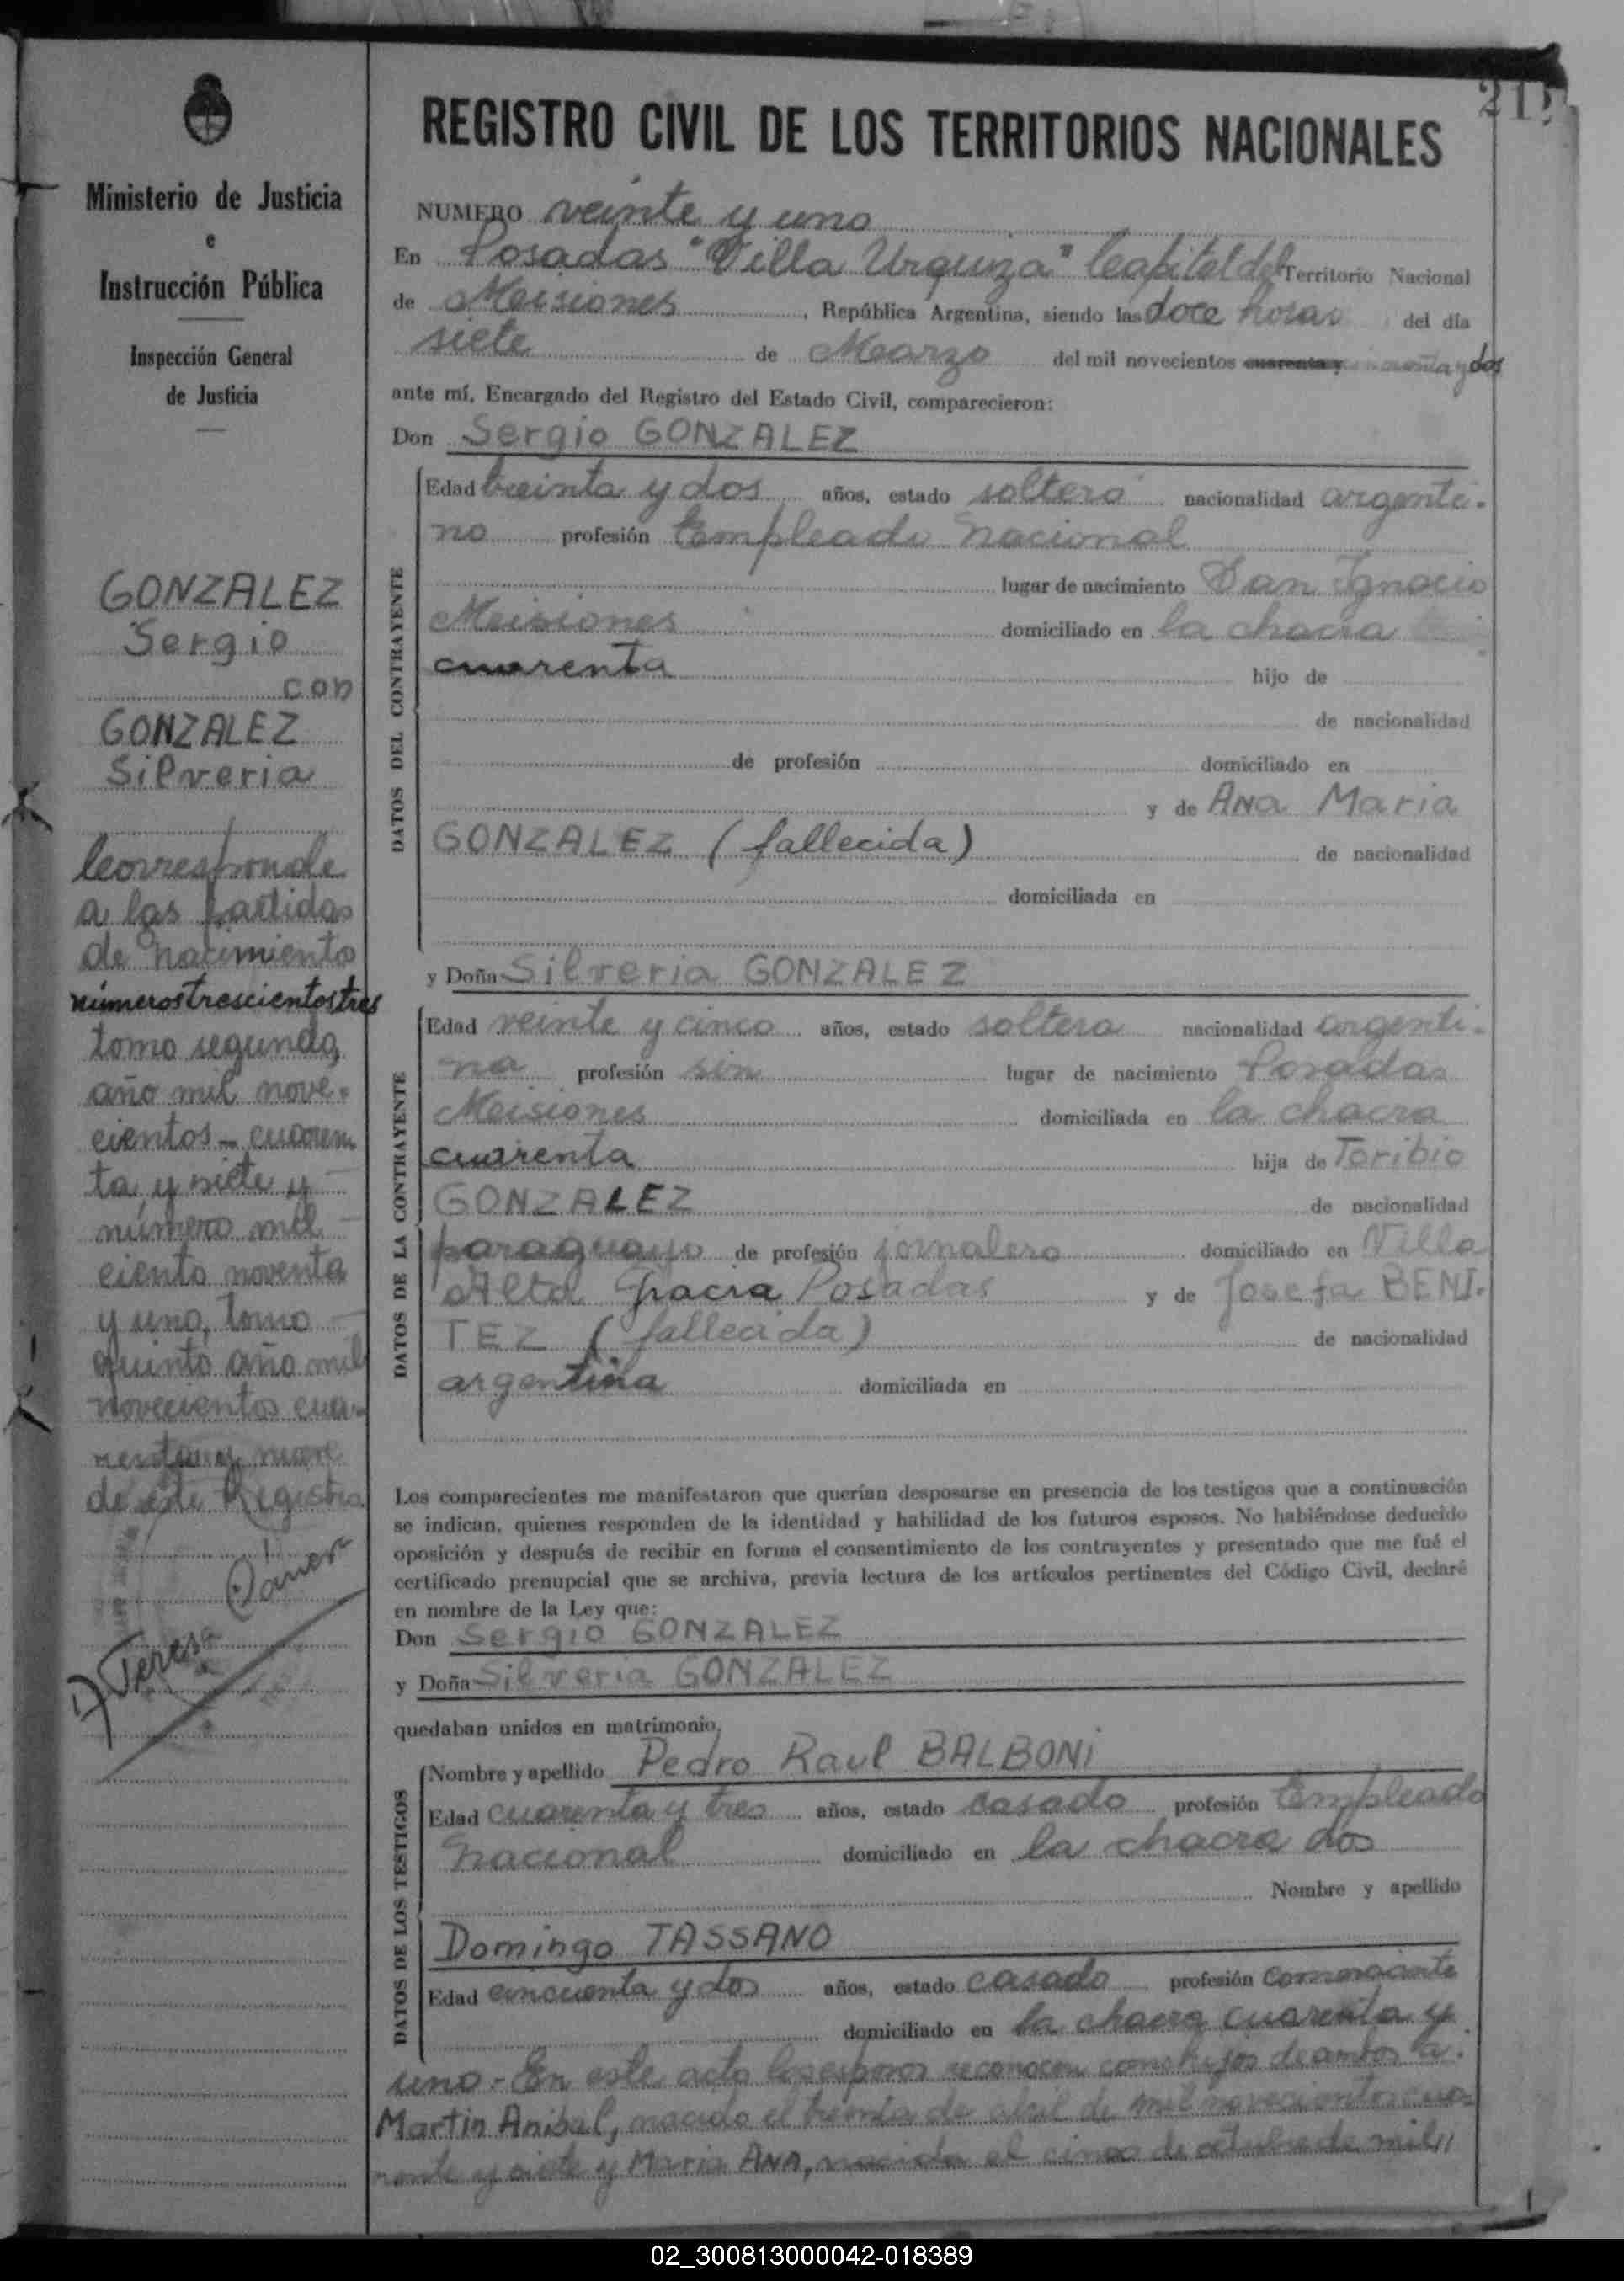 215
Ministerio de Justicia
e
Instrucción Pública
Inspección General
de Justicia
GONZALEZ
Sergio
con
GONZALEZ
Silveria
Corresponde
a las partidas
de nacimiento
números trescientos tres
tomo segundo,
año mil nove-
cientos cuaren
ta y siete y
número mil
ciento noventa
y uno, tomo
quinto año mil
novecientos cua-
renta y nueve
de este Registro
Teresa
REGISTRO CIVIL DE LOS TERRITORIOS NACIONALES
NUMERO veinte y uno
En Posadas "Villa Urquiza" Capital del Territorio Nacional
de Misiones, República Argentina, siendo las doce horas del día
siete de Marzo del mil novecientos cuarenta y cincuenta y dos
ante mí, Encargado del Registro del Estado Civil, comparecieron:
Don Sergio GONZALEZ
DATOS DEL CONTRAYENTE
Edad treinta y dos años, estado soltero nacionalidad argenti-
no profesión Empleado Nacional
lugar de nacimiento San Ignacio
Misiones domiciliado en la chacra
cuarenta hijo de
de nacionalidad
de profesión domiciliado en
y de Ana Maria
GONZALEZ (fallecida) de nacionalidad
domiciliada en
y Doña Silveria GONZALEZ
DATOS DE LA CONTRAYENTE
Edad veinte y cinco años, estado soltera nacionalidad argenti-
na profesión sin lugar de nacimiento Posadas
Misiones domiciliada en la chacra
cuarenta hija de Toribio
GONZALEZ de nacionalidad
paraguayo de profesión jornalero domiciliado en Villa
Alta Gracia Posadas y de Josefa BENI-
TEZ (fallecida) de nacionalidad
argentina domiciliada en
Los comparecientes me manifestaron que querían desposarse en presencia de los testigos que a continuación
se indican, quienes responden de la identidad y habilidad de los futuros esposos. No habiéndose deducido
oposición y después de recibir en forma el consentimiento de los contrayentes y presentado que me fué el
certificado prenupcial que se archiva, previa lectura de los artículos pertinentes del Código Civil, declaré
en nombre de la Ley que:
Don Sergio GONZALEZ
y Doña Silveria GONZALEZ
quedaban unidos en matrimonio,
DATOS DE LOS TESTIGOS
Nombre y apellido Pedro Raul BALBONI
Edad cuarenta y tres años, estado casado profesión Empleado
Nacional domiciliado en la chacra dos
Nombre y apellido
Domingo TASSANO
Edad cincuenta y dos años, estado casado profesión comerciante
domiciliado en la chacra cuarenta y
uno.- En este acto los esposos reconocen como hijos de ambos a:
Martin Anibal, nacido el treinta de abril de mil novecientos cua-
renta y siete y Maria Ana, nacida el cinco de octubre de mil
02_300813000042-018389